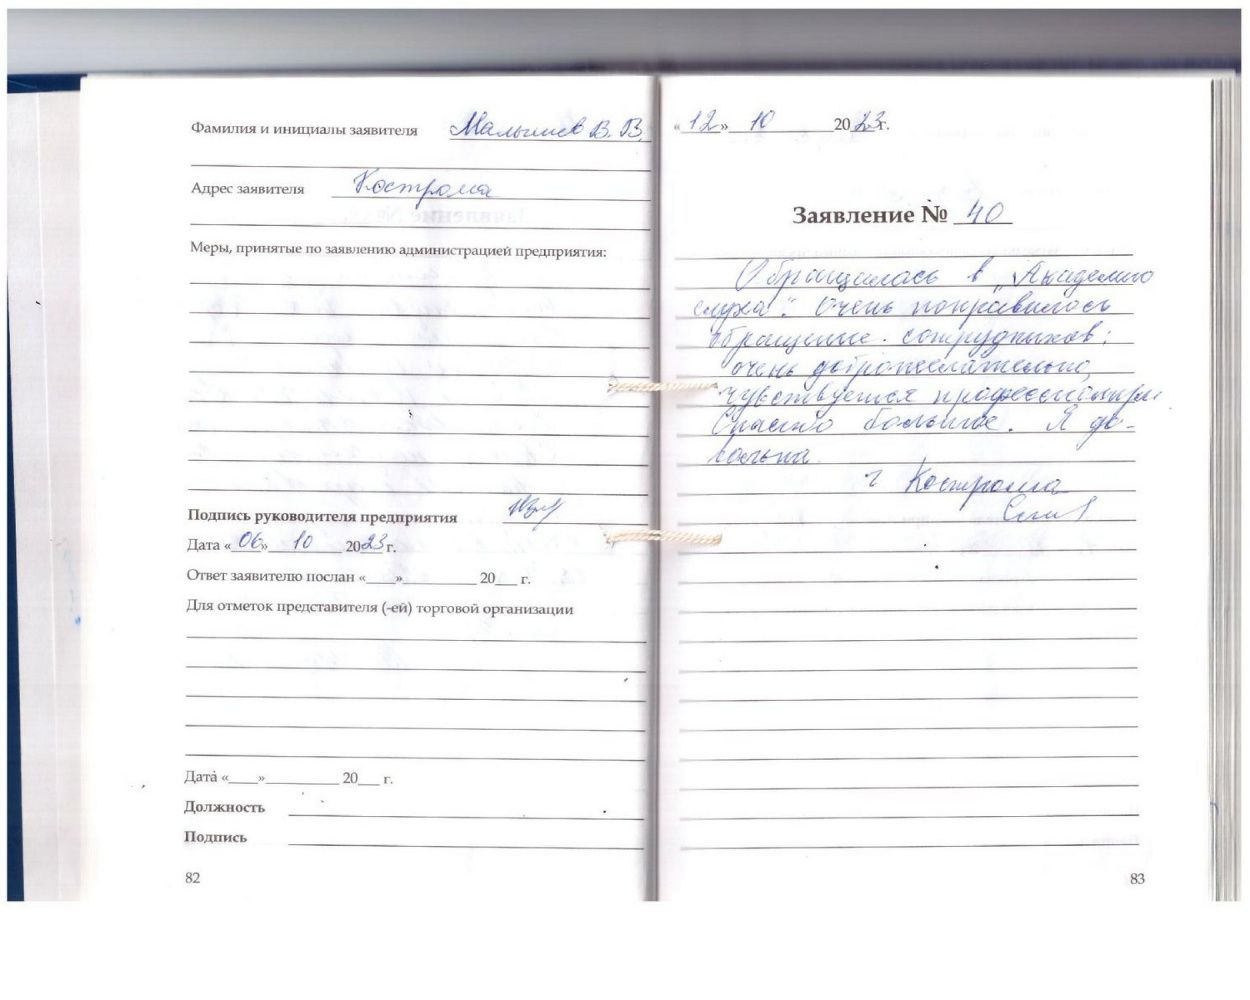 Фамилия и инициалы заявителя Малышев В. В.
Адрес заявителя Кострома
Меры, принятые по заявлению администрацией предприятия:
Подпись руководителя предприятия
Дата «06» 10 2023 г.
Ответ заявителю послан «____»__________ 20___ г.
Для отметок представителя (-ей) торговой организации
Дата «____»__________ 20___ г.
Должность
Подпись
82
«12» 10 2023 г.
Заявление № 40
Обращалась в "Академию
слуха". Очень понравилось
обращение сотрудников:
очень доброжелательно,
чувствуется
Спасибо большое. Я до-
вольна.
г Кострома
83